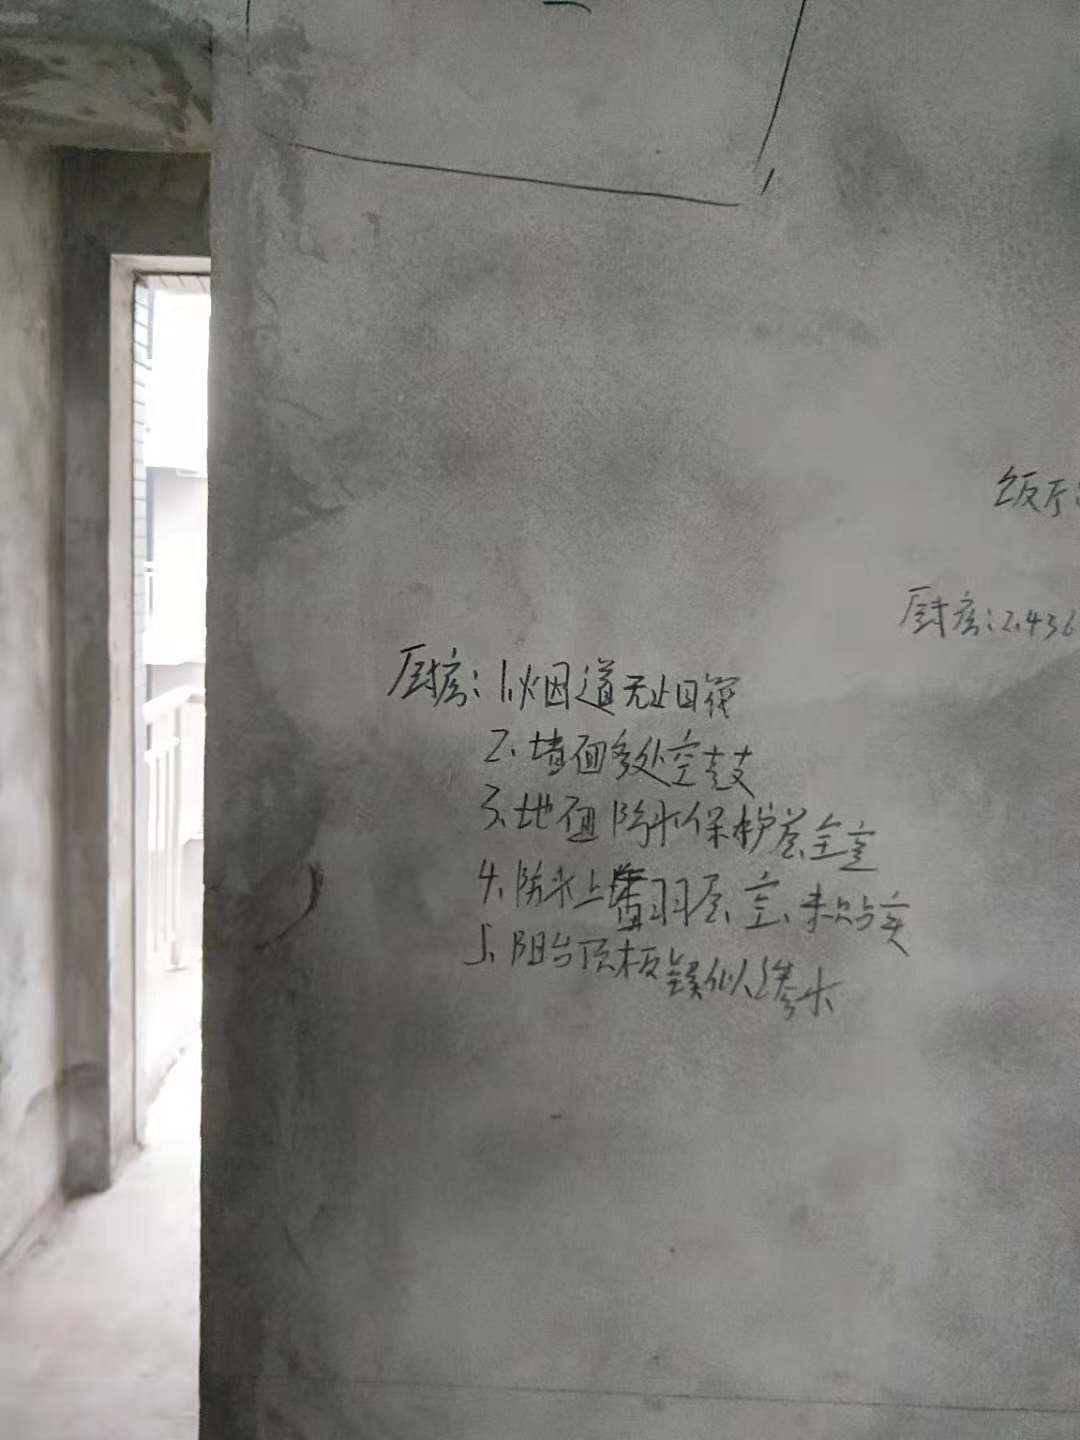 饭厅
厨房:2.436
厨房:1.烟道无止回阀
2、墙面多处空鼓
3、地面防水保护层、全空
4、防水上翻层、空、未贴实
5、阳台顶板疑似渗水